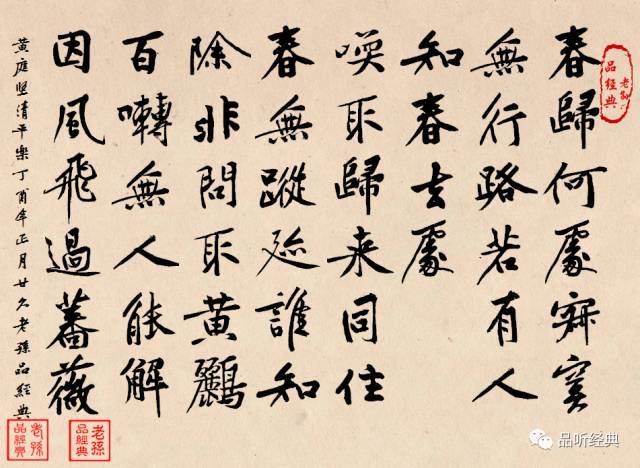 老孫
品經典
春歸何處寂寞
無行路若有人
知春去處
喚取歸来同住
春無蹤迹誰知
除非問取黄鸝
百囀無人能解
因風飛過薔薇
黄庭堅清平樂丁酉年正月廿九老孫品經典
老孫
品經典
老孫
品經典
品听经典